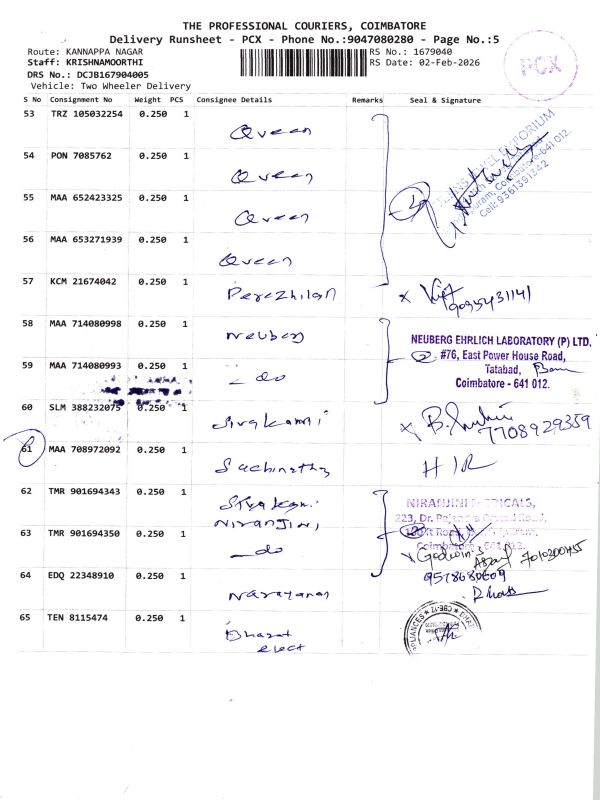 THE PROFESSIONAL COURIERS, COIMBATORE
Delivery Runsheet - PCX - Phone No.:9047080280 - Page No.:5
Route: KANNAPPA NAGAR
RS No.: 1679040
Staff: KRISHNAMOORTHI
RS Date: 02-Feb-2026
DRS No.: DCJB167904005
Vehicle: Two Wheeler Delivery
PCX
S No Consignment No Weight PCS Consignee Details Remarks Seal & Signature
53 TRZ 105032254 0.250 1 Queen
54 PON 7085762 0.250 1 Queen
55 MAA 652423325 0.250 1 Queen
56 MAA 653271939 0.250 1 Queen
EMPORIUM
Coimbatore-641 012.
Cell: 9361391342
57 KCM 21674042 0.250 1 Perezhilan
58 MAA 714080998 0.250 1 Neuberg
NEUBERG EHRLICH LABORATORY (P) LTD.
2 #76, East Power House Road,
Tatabad,
Coimbatore - 641 012.
59 MAA 714080993 0.250 1 - do
60 SLM 388232075 0.250 1 Sivakami
7708929359
61 MAA 708972092 0.250 1 H/R
62 TMR 901694343 0.250 1 Sivakami
Niranjini
NIRANJINI MEDICALS,
63 TMR 901694350 0.250 1 - do
Coimbatore - 641 012.
64 EDQ 22348910 0.250 1 Narayanan
9578680609
65 TEN 8115474 0.250 1 Bharat
elect